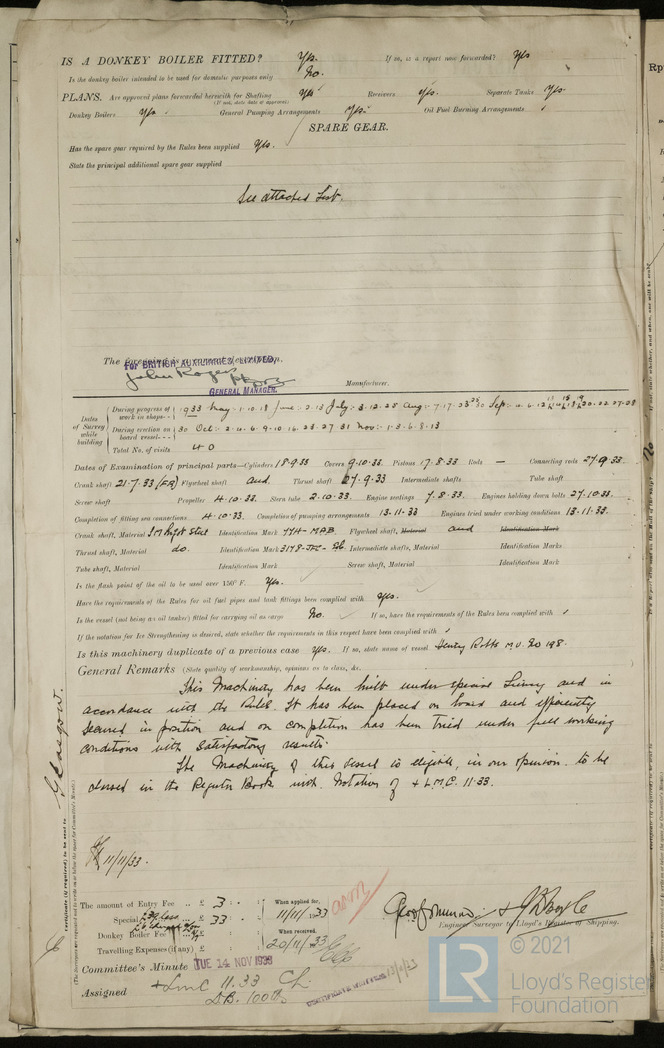 IS A DONKEY BOILER FITTED? Yes. If so, is a report now forwarded? Yes
Is the donkey boiler intended to be used for domestic purposes only No.
PLANS. Are approved plans forwarded herewith for Shafting Yes Receivers Yes. Separate Tanks Yes.
(If not, state date of approval)
Donkey Boilers Yes General Pumping Arrangements Yes. Oil Fuel Burning Arrangements
SPARE GEAR.
Has the spare gear required by the Rules been supplied Yes.
State the principal additional spare gear supplied
See attached List.
The foregoing is a correct description,
For BRITISH AUXILIARIES, LIMITED,
John Rogers
GENERAL MANAGER. Manufacturer.
Dates of Survey while building
During progress of work in shops - - 1933 May: 1.10.18 June: 2.13 July: 3.12.25 Aug: 7.17.23 30 Sep:
During erection on board vessel - - - 30 Oct: 2.4.6.9.10.16.23.27.31 Nov: 1.3.6.8.13
Total No. of visits 40
Dates of Examination of principal parts—Cylinders 18.9.33 Covers 9.10.33 Pistons 17.8.33 Rods — Connecting rods 27.9.33.
Crank shaft 21.7.33 (FR) Flywheel shaft and. Thrust shaft 27.9.33 Intermediate shafts Tube shaft
Screw shaft Propeller 4.10.33. Stern tube 2.10.33. Engine seatings 7.8.33 Engines holding down bolts 27.10.33.
Completion of fitting sea connections 4.10.33 Completion of pumping arrangements 13.11.33 Engines tried under working conditions 13.11.33.
Crank shaft, Material S M Ingot Steel Identification Mark 774-MAB. Flywheel shaft, Material and Identification Mark
Thrust shaft, Material do. Identification Mark Intermediate shafts, Material Identification Marks
Tube shaft, Material Identification Mark Screw shaft, Material Identification Mark
Is the flash point of the oil to be used over 150° F. Yes.
Have the requirements of the Rules for oil fuel pipes and tank fittings been complied with Yes.
Is the vessel (not being an oil tanker) fitted for carrying oil as cargo No. If so, have the requirements of the Rules been complied with
If the notation for Ice Strengthening is desired, state whether the requirements in this respect have been complied with
Is this machinery duplicate of a previous case Yes. If so, state name of vessel Henry Robbs M.V. No 198.
General Remarks (State quality of workmanship, opinions as to class, &c.
This Machinery has been built under special Survey and in
accordance with the Rules. It has been placed on board and efficiently
secured in position and on completion has been tried under full working
conditions with satisfactory results.
The Machinery of this vessel is eligible, in our opinion, to be
classed in the Register Book with Notation of + L.M.C. 11.33.
Glasgow.
11/11/33.
The amount of Entry Fee .. £ 3 : :
Special £ 33 : :
Donkey Boiler Fee £ : :
Travelling Expenses (if any) £ : :
When applied for, 11/11/1933
When received, 20/11/33
Engineer Surveyor to Lloyd's Register of Shipping.
Committee's Minute TUE 14 NOV 1933
Assigned + LMC 11.33
DB. 100 lb
© 2021
Lloyd's Register
Foundation
LR